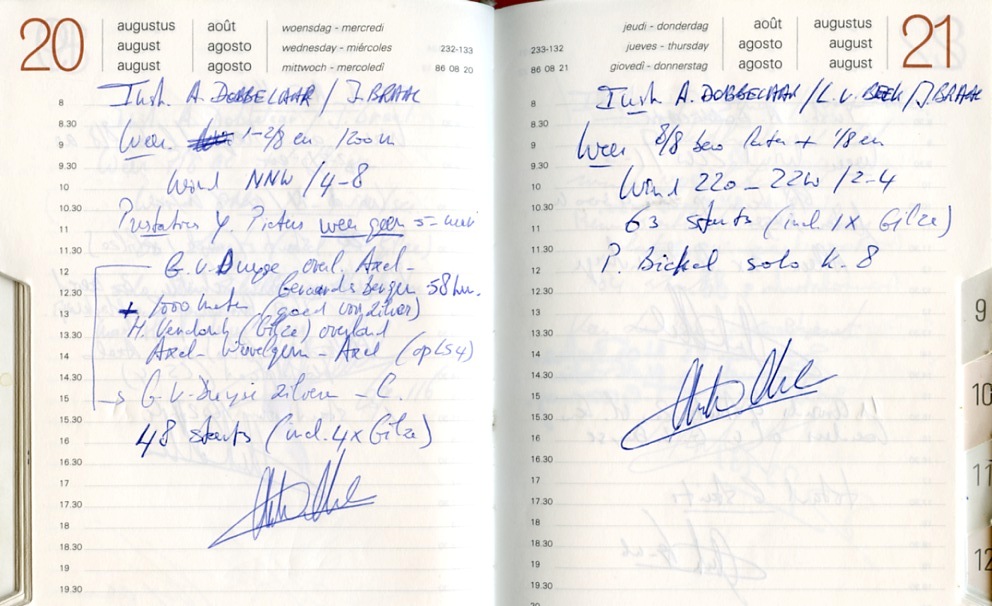 20
augustus août woensdag - mercredi
august agosto wednesday - miércoles 232-133
august agosto mittwoch - mercoledì 86 08 20
8 Instr. A. DOBBELAAR / J. BRAAK
8.30
9 Weer. 1-2/8 en 1200 m
9.30
10 Wind NNW / 4-8
10.30
11 Prestaties Y. Pictus weer geen 5-uur
11.30
12 G. v. Duyse overl. Axel -
12.30 Geraardsbergen 58 km.
13 + 1000 meter (goed voor zilver)
13.30 H. (Gilze) overland
14 Axel - Wevelgem - Axel (op LS4)
14.30
15 → G. v. Duyse zilveren - C.
15.30
16 48 starts (incl. 4x Gilze)
16.30
17
17.30
18
18.30
19
19.30
jeudi - donderdag août augustus 21
233-132 jueves - thursday agosto august
86 08 21 giovedì - donnerstag agosto august
8 Instr. A. DOBBELAAR / L. v. BEEK / J. BRAAK
8.30
9 Weer 8/8 1/8 en
9.30
10 Wind 220 - 220 / 2-4
10.30
11 63 starts (incl. 1x Gilze)
11.30
12 P. Bickel solo K-8
12.30
13
13.30
14
14.30
15
15.30
16
16.30
17
17.30
18
18.30
19
19.30
20
9
10
11
12